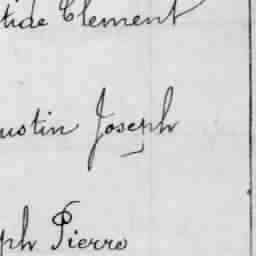 tide Clement
ustin Joseph
ph Pierre